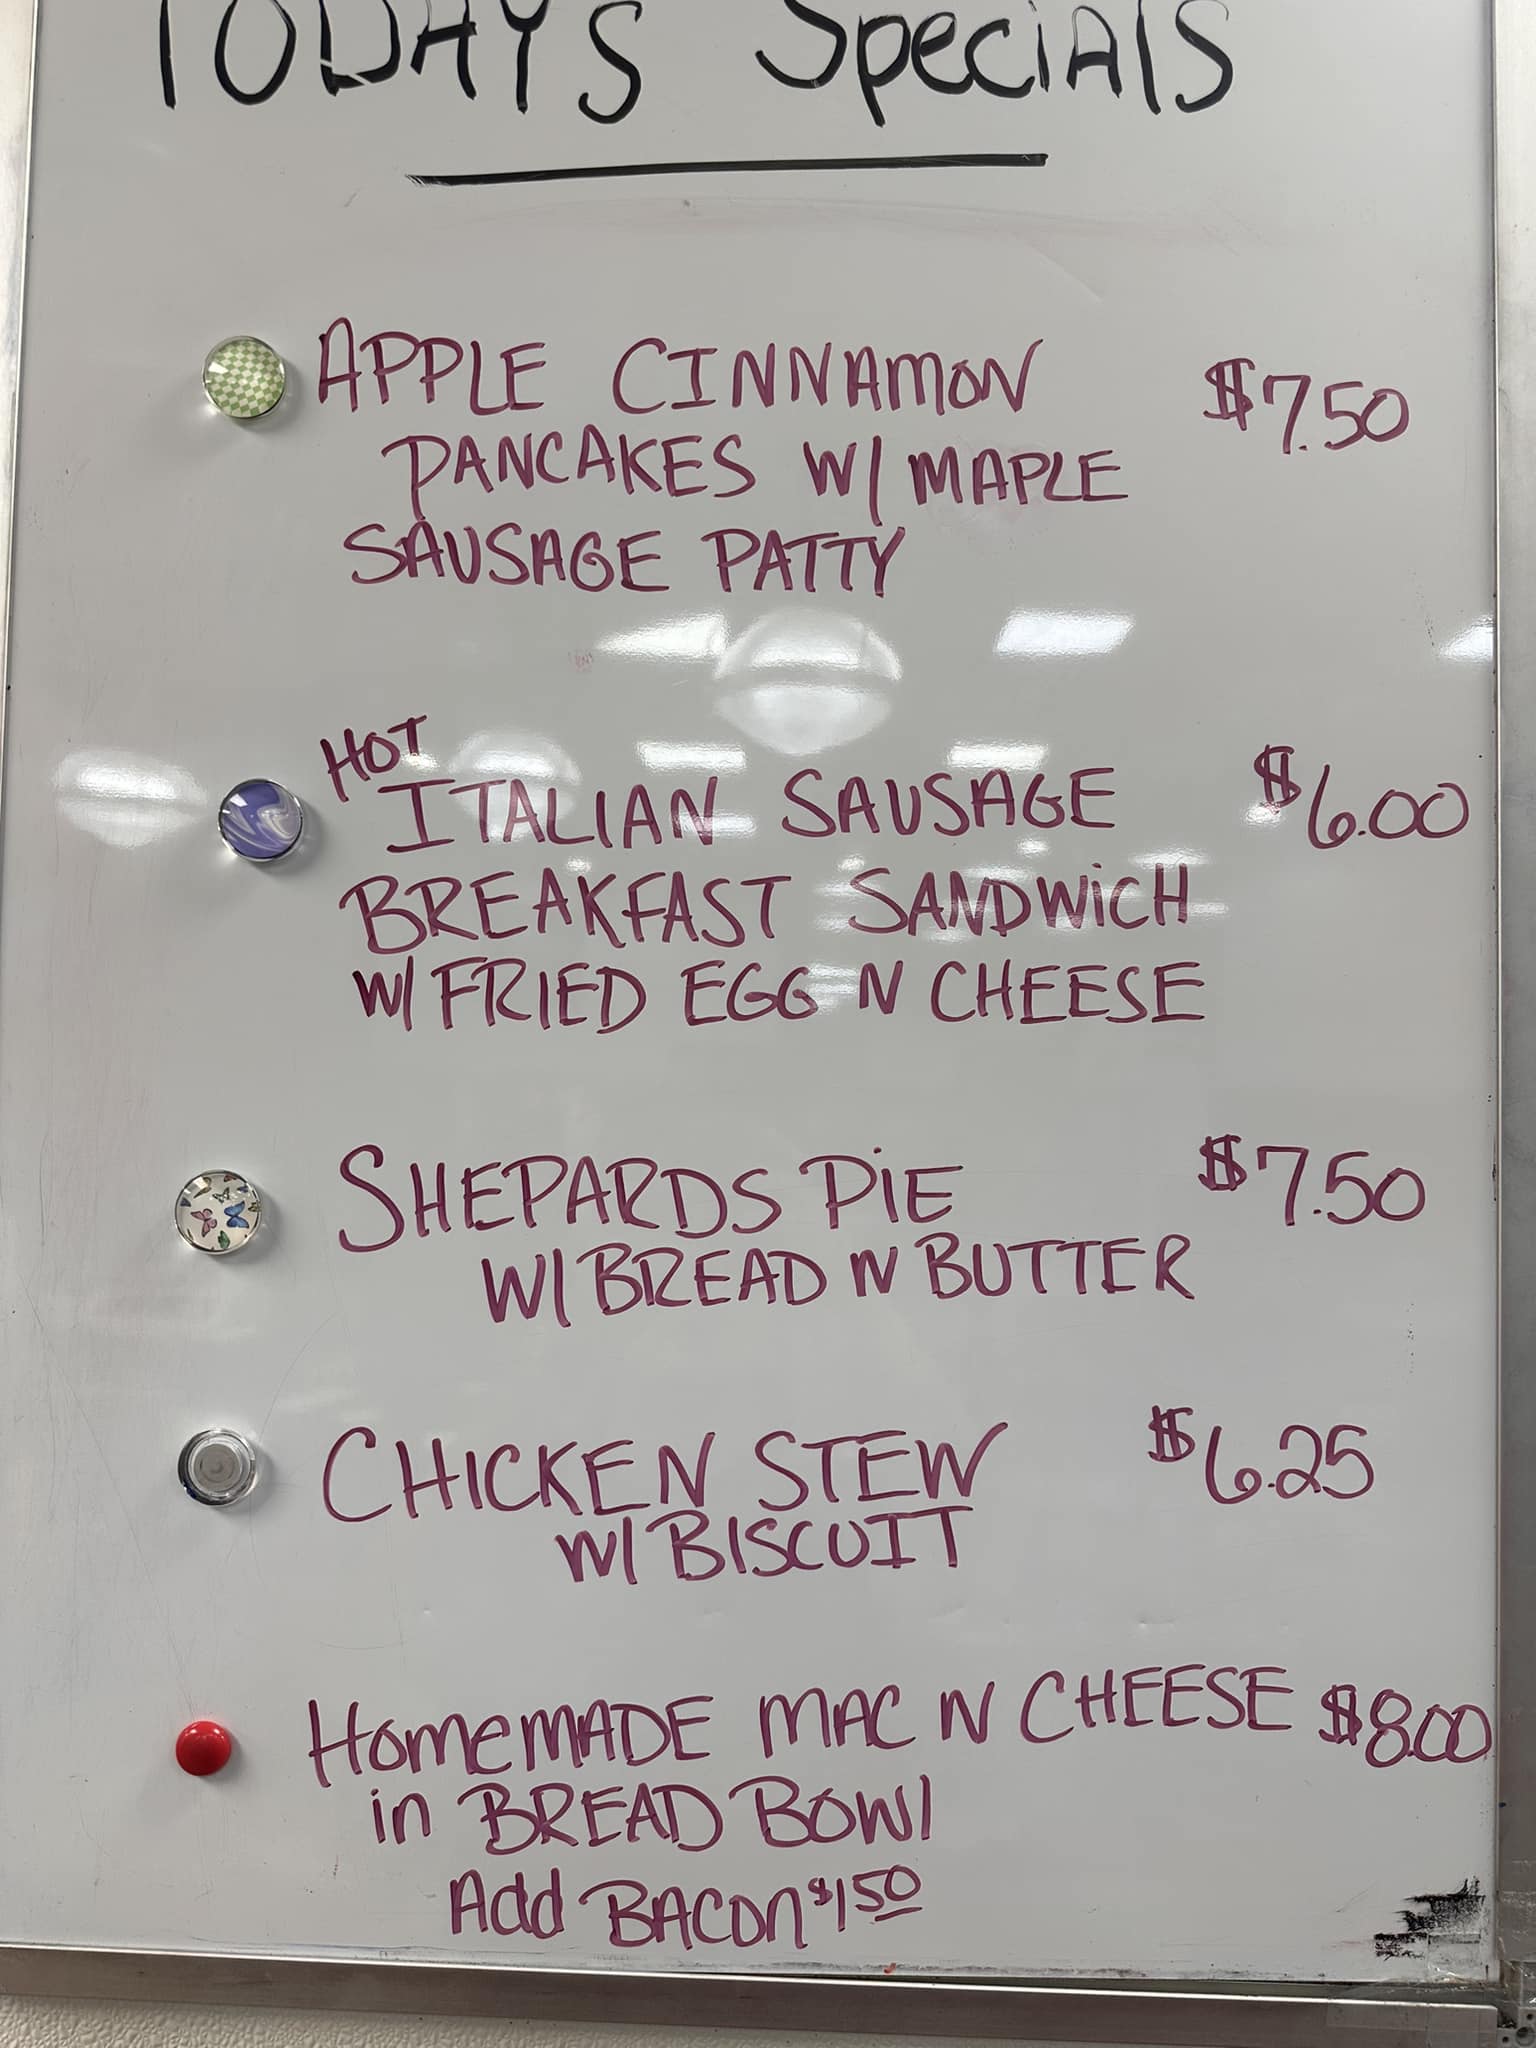 TODAY'S Specials
APPLE CINNAMON $7.50
PANCAKES W/ MAPLE
SAUSAGE PATTY
HOT
ITALIAN SAUSAGE $6.00
BREAKFAST SANDWiCH
W/ FRIED EGG N CHEESE
SHEPARDS PiE $7.50
W/ BREAD N BUTTER
CHICKEN STEW $6.25
W/ BISCUIT
HomemADE MAC N CHEESE $8.00
in BREAD BOWl
Add BACON $1.50